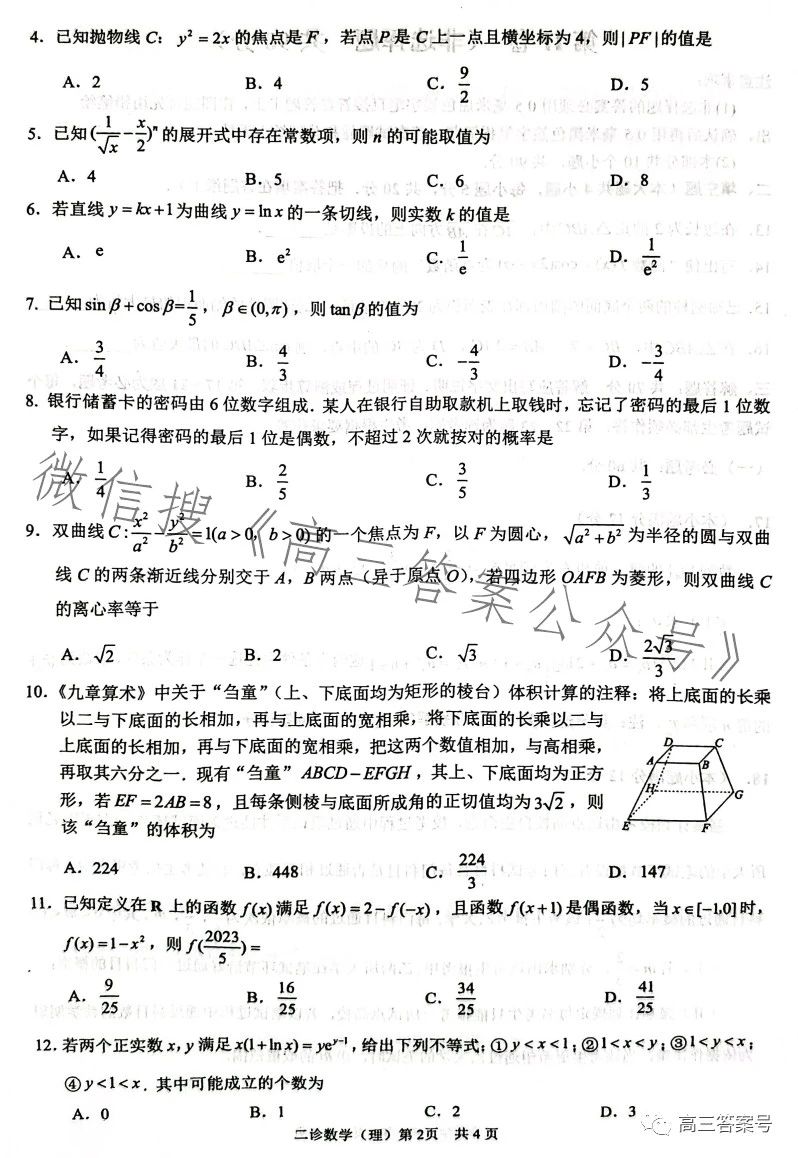 4. 已知抛物线 C: y² = 2x 的焦点是 F, 若点 P 是 C 上一点且横坐标为 4, 则 |PF| 的值是
A. 2 B. 4 C. 9/2 D. 5
5. 已知 (1/√x − x/2)ⁿ 的展开式中存在常数项, 则 n 的可能取值为
A. 4 B. 5 C. 6 D. 8
6. 若直线 y = kx+1 为曲线 y = ln x 的一条切线, 则实数 k 的值是
A. e B. e² C. 1/e D. 1/e²
7. 已知 sin β + cos β = 1/5, β∈(0,π), 则 tan β 的值为
A. 3/4 B. 4/3 C. −4/3 D. −3/4
8. 银行储蓄卡的密码由 6 位数字组成. 某人在银行自助取款机上取钱时, 忘记了密码的最后 1 位数
字, 如果记得密码的最后 1 位是偶数, 不超过 2 次就按对的概率是
A. 1/4 B. 2/5 C. 3/5 D. 1/3
9. 双曲线 C: x²/a² − y²/b² = 1(a > 0, b > 0) 的一个焦点为 F, 以 F 为圆心, √(a²+b²) 为半径的圆与双曲
线 C 的两条渐近线分别交于 A, B 两点 (异于原点 O), 若四边形 OAFB 为菱形, 则双曲线 C
的离心率等于
A. √2 B. 2 C. √3 D. 2√3/3
10.《九章算术》中关于“刍童”(上、下底面均为矩形的棱台) 体积计算的注释: 将上底面的长乘
以二与下底面的长相加, 再与上底面的宽相乘, 将下底面的长乘以二与
上底面的长相加, 再与下底面的宽相乘, 把这两个数值相加, 与高相乘,
再取其六分之一. 现有“刍童” ABCD − EFGH, 其上、下底面均为正方
形, 若 EF = 2AB = 8, 且每条侧棱与底面所成角的正切值均为 3√2, 则
该“刍童”的体积为
D C
A B
H G
E F
A. 224 B. 448 C. 224/3 D. 147
11. 已知定义在 R 上的函数 f(x) 满足 f(x) = 2 − f(−x), 且函数 f(x+1) 是偶函数, 当 x∈[−1,0] 时,
f(x) = 1 − x², 则 f(2023/5) =
A. 9/25 B. 16/25 C. 34/25 D. 41/25
12. 若两个正实数 x, y 满足 x(1+ln x) = yeʸ⁻¹, 给出下列不等式: ① y < x < 1; ② 1 < x < y; ③ 1 < y < x;
④ y < 1 < x. 其中可能成立的个数为
A. 0 B. 1 C. 2 D. 3
二诊数学(理)第2页 共4页
微信搜《高三答案公众号》
高三答案号